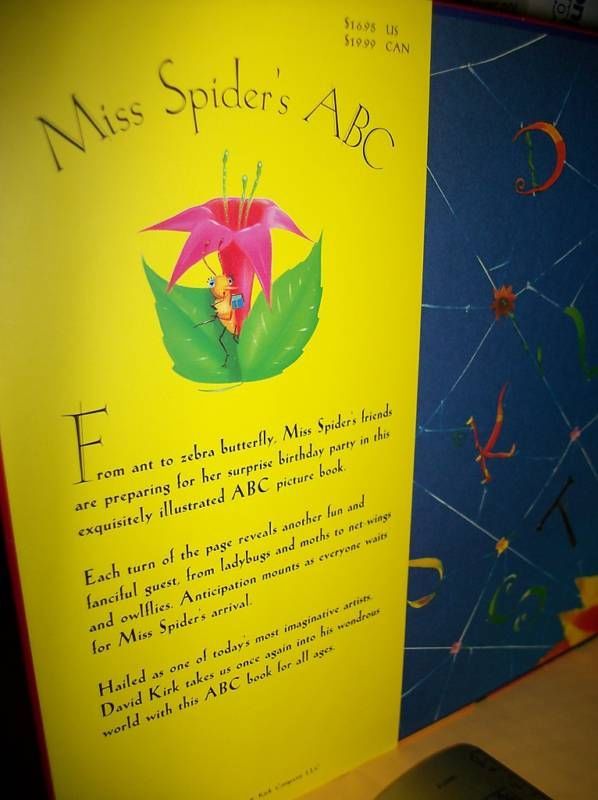 $16.95 US
$19.99 CAN
Miss Spider's ABC
From ant to zebra butterfly, Miss Spider's friends
are preparing for her surprise birthday party in this
exquisitely illustrated ABC picture book.
Each turn of the page reveals another fun and
fanciful guest, from ladybugs and moths to net-wings
and owlflies. Anticipation mounts as everyone waits
for Miss Spider's arrival.
Hailed as one of today's most imaginative artists,
David Kirk takes us once again into his wondrous
world with this ABC book for all ages.
Kirk Company LLC
D
K